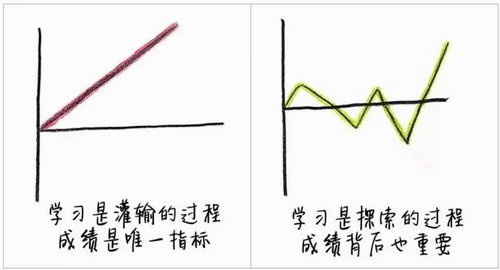 学习是灌输的过程
成绩是唯一指标
学习是探索的过程
成绩背后也重要